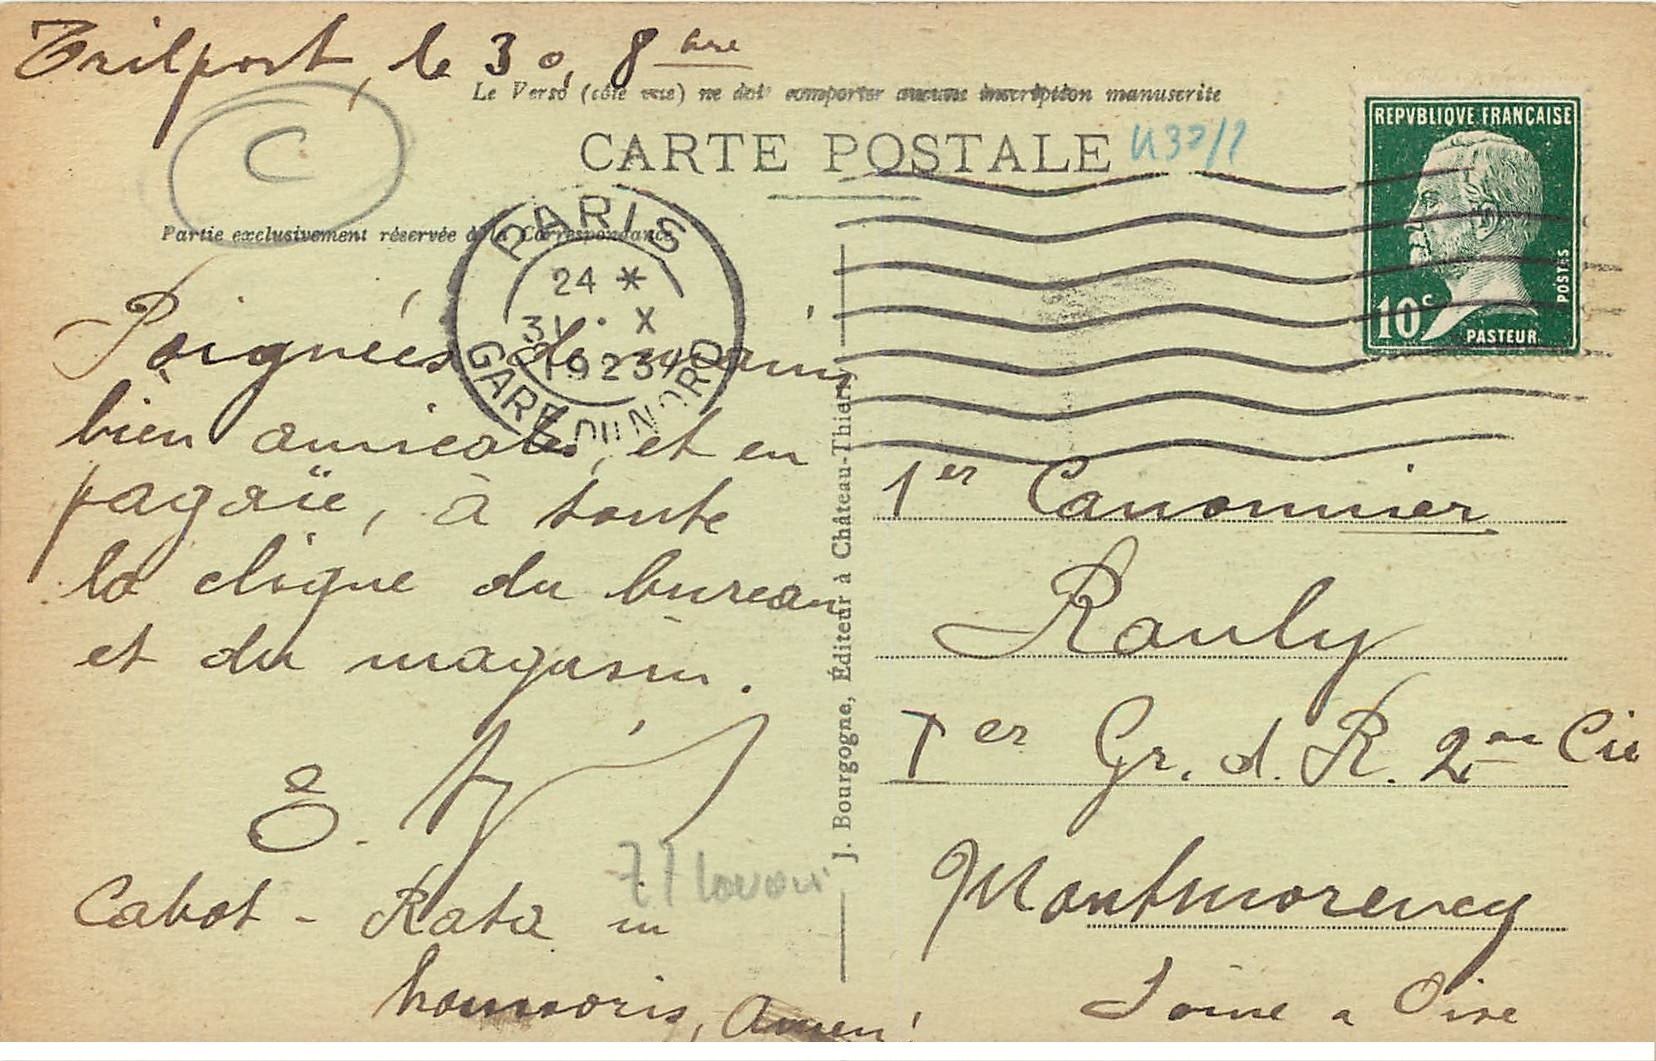 Trilport, le 30, 8bre
Le Verso (côté vue) ne doit comporter aucune inscription manuscrite
C
CARTE POSTALE
REPVBLIQVE FRANÇAISE
10c
POSTES
PASTEUR
Partie exclusivement réservée à la Correspondance
PARIS
24 *
31 · X
1923
GARE DU NORD
Poignées de mains
bien amicales, et en
pagaïe, à toute
la clique du bureau
et du magasin.
E.
Cabot - Rata in
honnoris, Amen!
77
J. Bourgogne, Éditeur à Château-Thierry
1er Canonnier
Rauly
1er Gr. d. R. 2me Cie
Montmorency
Seine & Oise